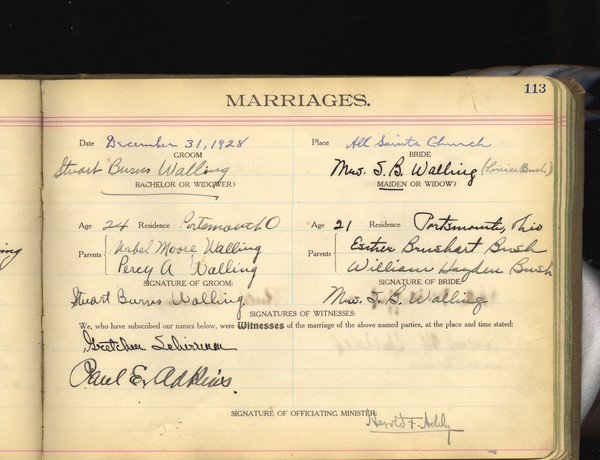 113
MARRIAGES.
Date December 31, 1928 Place All Saints Church
GROOM BRIDE
Stuart Burns Walling Mrs. S. B. Walling (Louise Bush)
BACHELOR OR WIDOWER? MAIDEN OR WIDOW?
Age 24 Residence Portsmouth O Age 21 Residence Portsmouth, Ohio
Parents Mabel Moore Walling Parents Esther Brushart Bush
Percy A Walling William Hayden Bush
SIGNATURE OF GROOM: SIGNATURE OF BRIDE:
Stuart Burns Walling Mrs. S. B. Walling
SIGNATURES OF WITNESSES:
We, who have subscribed our names below, were Witnesses of the marriage of the above named parties, at the place and time stated:
Gretchen
Paul E. Adkins.
SIGNATURE OF OFFICIATING MINISTER:
Harold F.